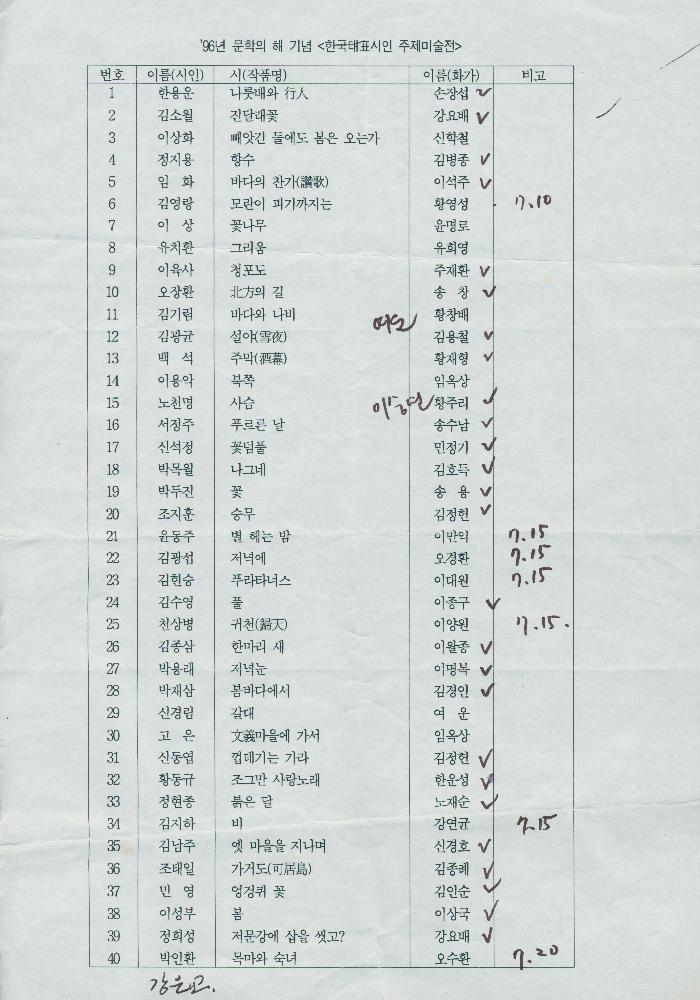 '96년 문학의 해 기념 <한국대표시인 주제미술전>
번호 이름(시인) 시(작품명) 이름(화가) 비고
1 한용운 나룻배와 行人 손장섭 ✓
2 김소월 진달래꽃 강요배 ✓
3 이상화 빼앗긴 들에도 봄은 오는가 신학철
4 정지용 향수 김병종 ✓
5 임 화 바다의 찬가(讚歌) 이석주 ✓
6 김영랑 모란이 피기까지는 황영성 7.10
7 이 상 꽃나무 윤명로
8 유치환 그리움 유희영
9 이육사 청포도 주재환 ✓
10 오장환 北方의 길 송 창 ✓
11 김기림 바다와 나비 황창배
12 김광균 설야(雪夜) 김용철 ✓
13 백 석 주막(酒幕) 황재형 ✓
14 이용악 북쪽 임옥상
15 노천명 사슴 황주리 ✓
16 서정주 푸르른 날 송수남 ✓
17 신석정 꽃덤풀 민정기 ✓
18 박목월 나그네 김호득 ✓
19 박두진 꽃 송 용 ✓
20 조지훈 승무 김정헌 ✓
21 윤동주 별 헤는 밤 이만익 7.15
22 김광섭 저녁에 오경환 7.15
23 김현승 푸라타너스 이대원 7.15
24 김수영 풀 이종구 ✓
25 천상병 귀천(歸天) 이양원 7.15.
26 김종삼 한마리 새 이왈종 ✓
27 박용래 저녁눈 이명복 ✓
28 박재삼 봄바다에서 김경인 ✓
29 신경림 갈대 여 운
30 고 은 文義마을에 가서 임옥상
31 신동엽 껍데기는 가라 김정헌 ✓
32 황동규 조그만 사랑노래 한운성 ✓
33 정현종 붉은 달 노재순 ✓
34 김지하 비 강연균 7.15
35 김남주 옛 마을을 지나며 신경호 ✓
36 조태일 가거도(可居島) 김종례 ✓
37 민 영 엉겅퀴 꽃 김인순 ✓
38 이성부 봄 이상국 ✓
39 정희성 저문강에 삽을 씻고? 강요배 ✓
40 박인환 목마와 숙녀 오수환 7.20
강은교.